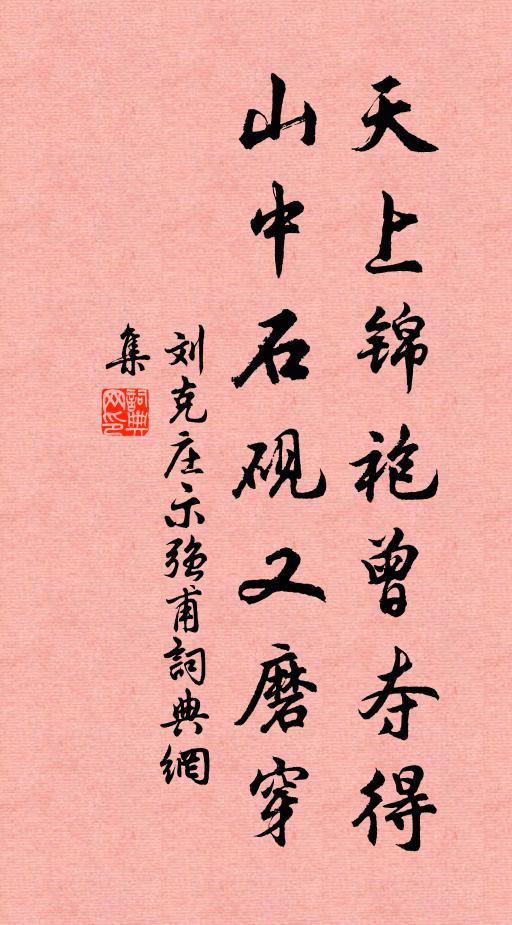 天上锦袍曾夺得
山中石砚又磨穿
刘克庄示强甫詞典網
集
詞典网印